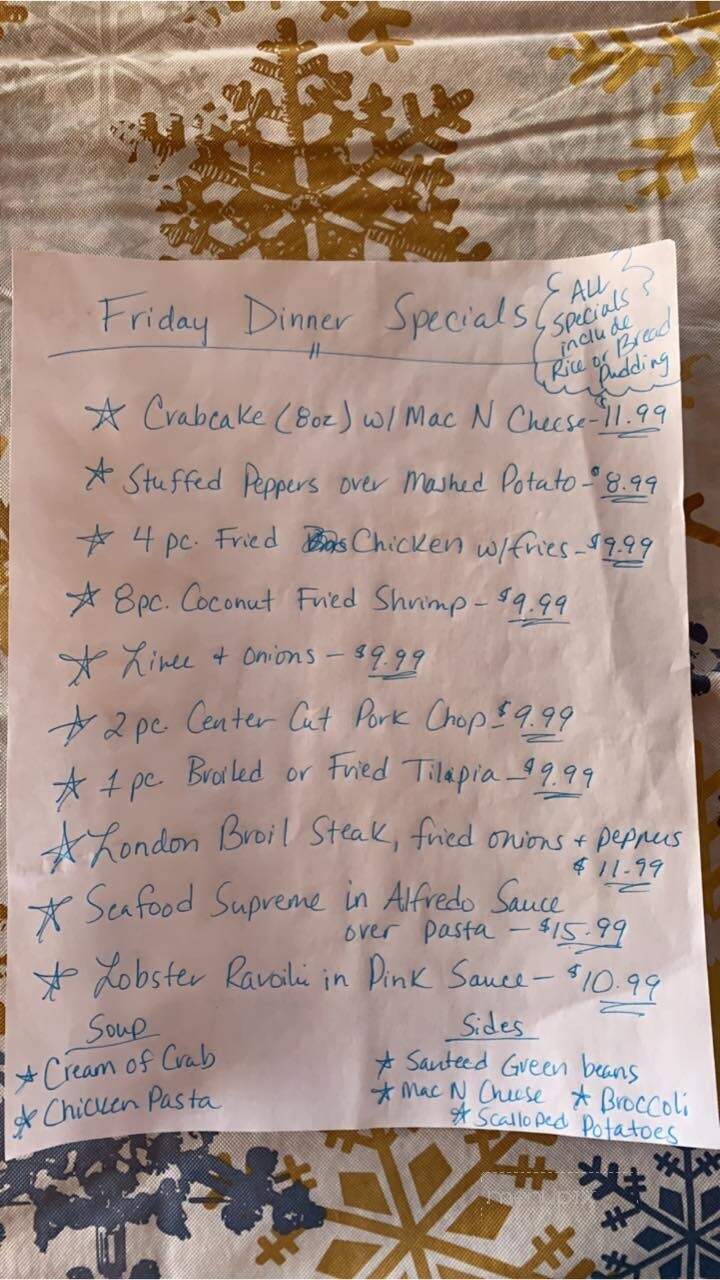 Friday Dinner Specials
ALL
specials
include
Rice or Bread
Pudding
☆ Crabcake (8oz) w/ Mac N Cheese - $11.99
☆ Stuffed Peppers over Mashed Potato - $8.99
☆ 4 pc. Fried Chicken w/fries - $9.99
☆ 8pc. Coconut Fried Shrimp - $9.99
☆ Liver + onions - $9.99
☆ 2 pc. Center Cut Pork Chop - $9.99
☆ 1 pc. Broiled or Fried Tilapia - $9.99
☆ London Broil Steak, fried onions + peppers
$11.99
☆ Seafood Supreme in Alfredo Sauce
over pasta - $15.99
☆ Lobster Ravoili in Pink Sauce - $10.99
Soup
☆ Cream of Crab
☆ Chicken Pasta
Sides
☆ Sauteed Green beans
☆ Mac N Cheese ☆ Broccoli
☆ Scalloped Potatoes